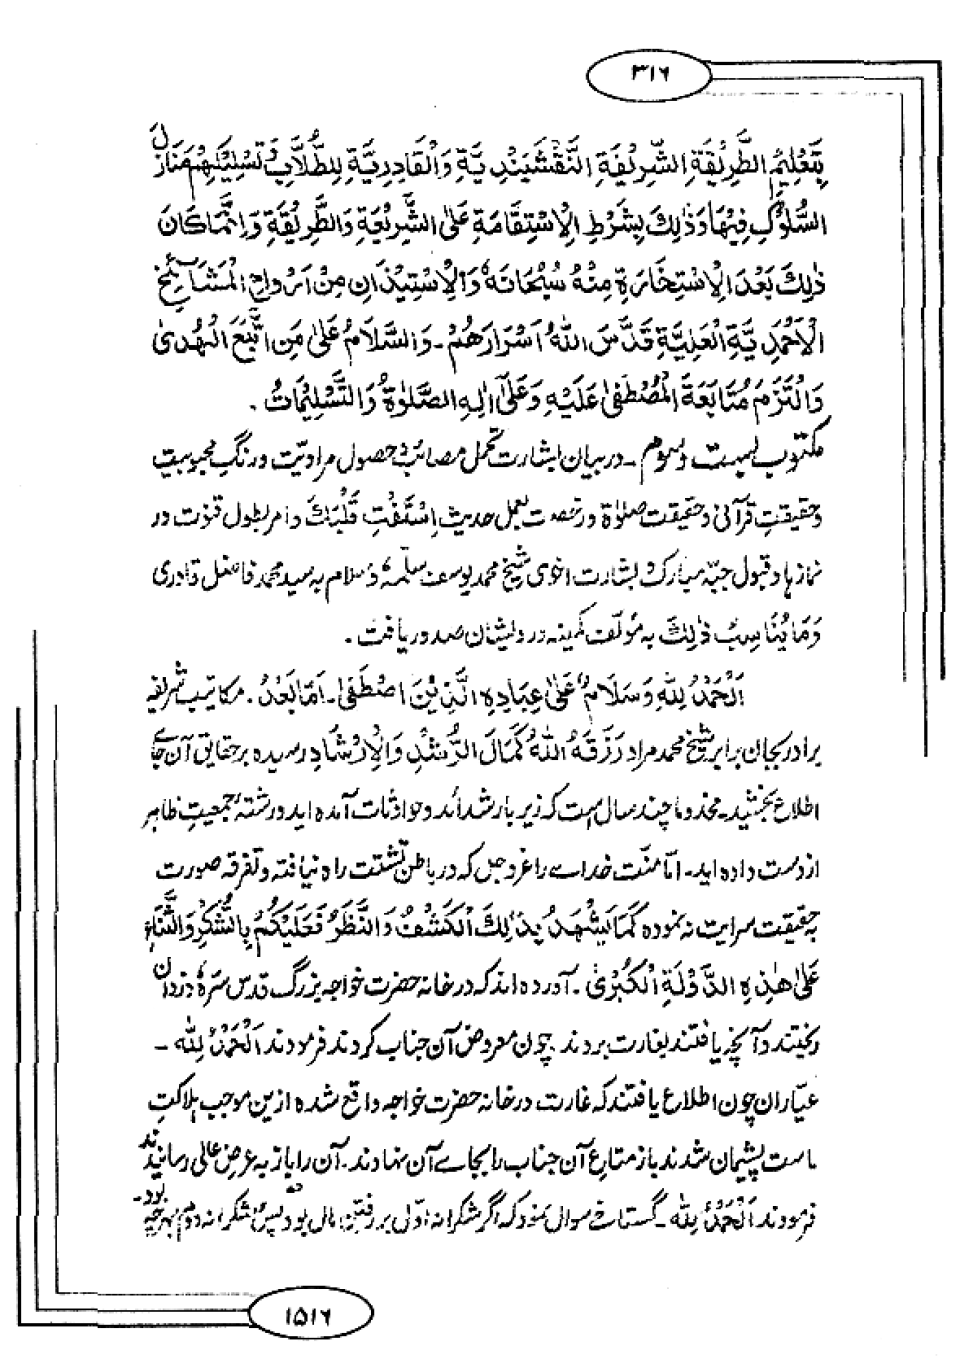 ۳۱۶
بِتَعْلِيْمِ الطَّرِيْقَةِ الشَّرِيْفَةِ النَّقْشَبَنْدِيَّةِ وَالْقَادِرِيَّةِ لِلطُّلَّابِ وَتَسْلِيْكِهِمْ مَنَازِلَ
السُّلُوْكِ فِيْهَا وَذٰلِكَ بِشَرْطِ الْاِسْتِقَامَةِ عَلَى الشَّرِيْعَةِ وَالطَّرِيْقَةِ وَاِنَّمَا كَانَ
ذٰلِكَ بَعْدَ الْاِسْتِخَارَةِ مِنْهُ سُبْحَانَهٗ وَالْاِسْتِيْذَانِ مِنْ اَرْوَاحِ الْمَشَائِخِ
الْاَحْمَدِيَّةِ الْعَلِيَّةِ قَدَّسَ اللّٰهُ اَسْرَارَهُمْ ۔ وَالسَّلَامُ عَلٰى مَنِ اتَّبَعَ الْهُدٰى
وَالْتَزَمَ مُتَابَعَةَ الْمُصْطَفٰى عَلَيْهِ وَعَلٰى اٰلِهِ الصَّلٰوةُ وَالتَّسْلِيْمَاتُ .
مکتوب بیست و سوم ۔ در بیان بشارت تحمل مصائب و حصول مرادیّت و رنگِ محبوبیت
و حقیقتِ قرآنی و حقیقت صلوٰة و رخصت بعمل حدیث اِسْتَفْتِ قَلْبَكَ و امر بطول قنوت در
نمازہا و قبول جبّہ مبارک و بشارت اخوی شیخ محمد یوسف سلّمہٗ و سلام بہ سید محمد فاضل قادری
وَمَا يُنَاسِبُ ذٰلِكَ بہ مؤلّف کمینہ درویشان صدور یافت .
اَلْحَمْدُ لِلّٰهِ وَسَلَامٌ عَلٰى عِبَادِهِ الَّذِيْنَ اصْطَفٰى ۔ اَمَّا بَعْدُ . مکاتیب شریفہ
برادر بجان برابر شیخ محمد مراد رَزَقَهُ اللّٰهُ كَمَالَ الرُّشْدِ وَالْاِرْشَادِ رسیدہ بر حقایق آن جاے
اطلاع بخشید ۔ مخدوما چند سال است کہ زیر بار شدائد و حوادثات آمدہ اید و رشتۂ جمعیتِ ظاہر
از دست دادہ اید ۔ امّا منّت خداے را عزوجل کہ در باطن تشتت راہ نیافتہ و تفرقہ صورت
بہ حقیقت سرایت نہ نمودہ كَمَا يَشْهَدُ بِذٰلِكَ الْكَشْفُ وَالنَّظَرُ فَعَلَيْكُمْ بِالشُّكْرِ وَالثَّنَاءِ
عَلٰى هٰذِهِ الدَّوْلَةِ الْكُبْرٰى ۔ آوردہ اند کہ در خانہ حضرت خواجہ بزرگ قدس سرہٗ دزدان
ریختند و آنچہ یافتند بغارت بردند ۔ چون معروض آن جناب کردند فرمودند اَلْحَمْدُ لِلّٰه ۔
عیّاران چون اطلاع یافتند کہ غارت در خانہ حضرت خواجہ واقع شدہ ازین موجب ہلاکتِ
ماست پشیمان شدند باز متاعِ آن جناب را بجاے آن نہادند ۔ آن را باز بہ عرض عالی رسانیدند
فرمودند اَلْحَمْدُ لِلّٰه ۔ گستاخے سوال نمود کہ اگر شکرانہ اولی بر رفتن مال بود پس شکرانہ دوم بہر چہ بود ۔
۱۵۱۶